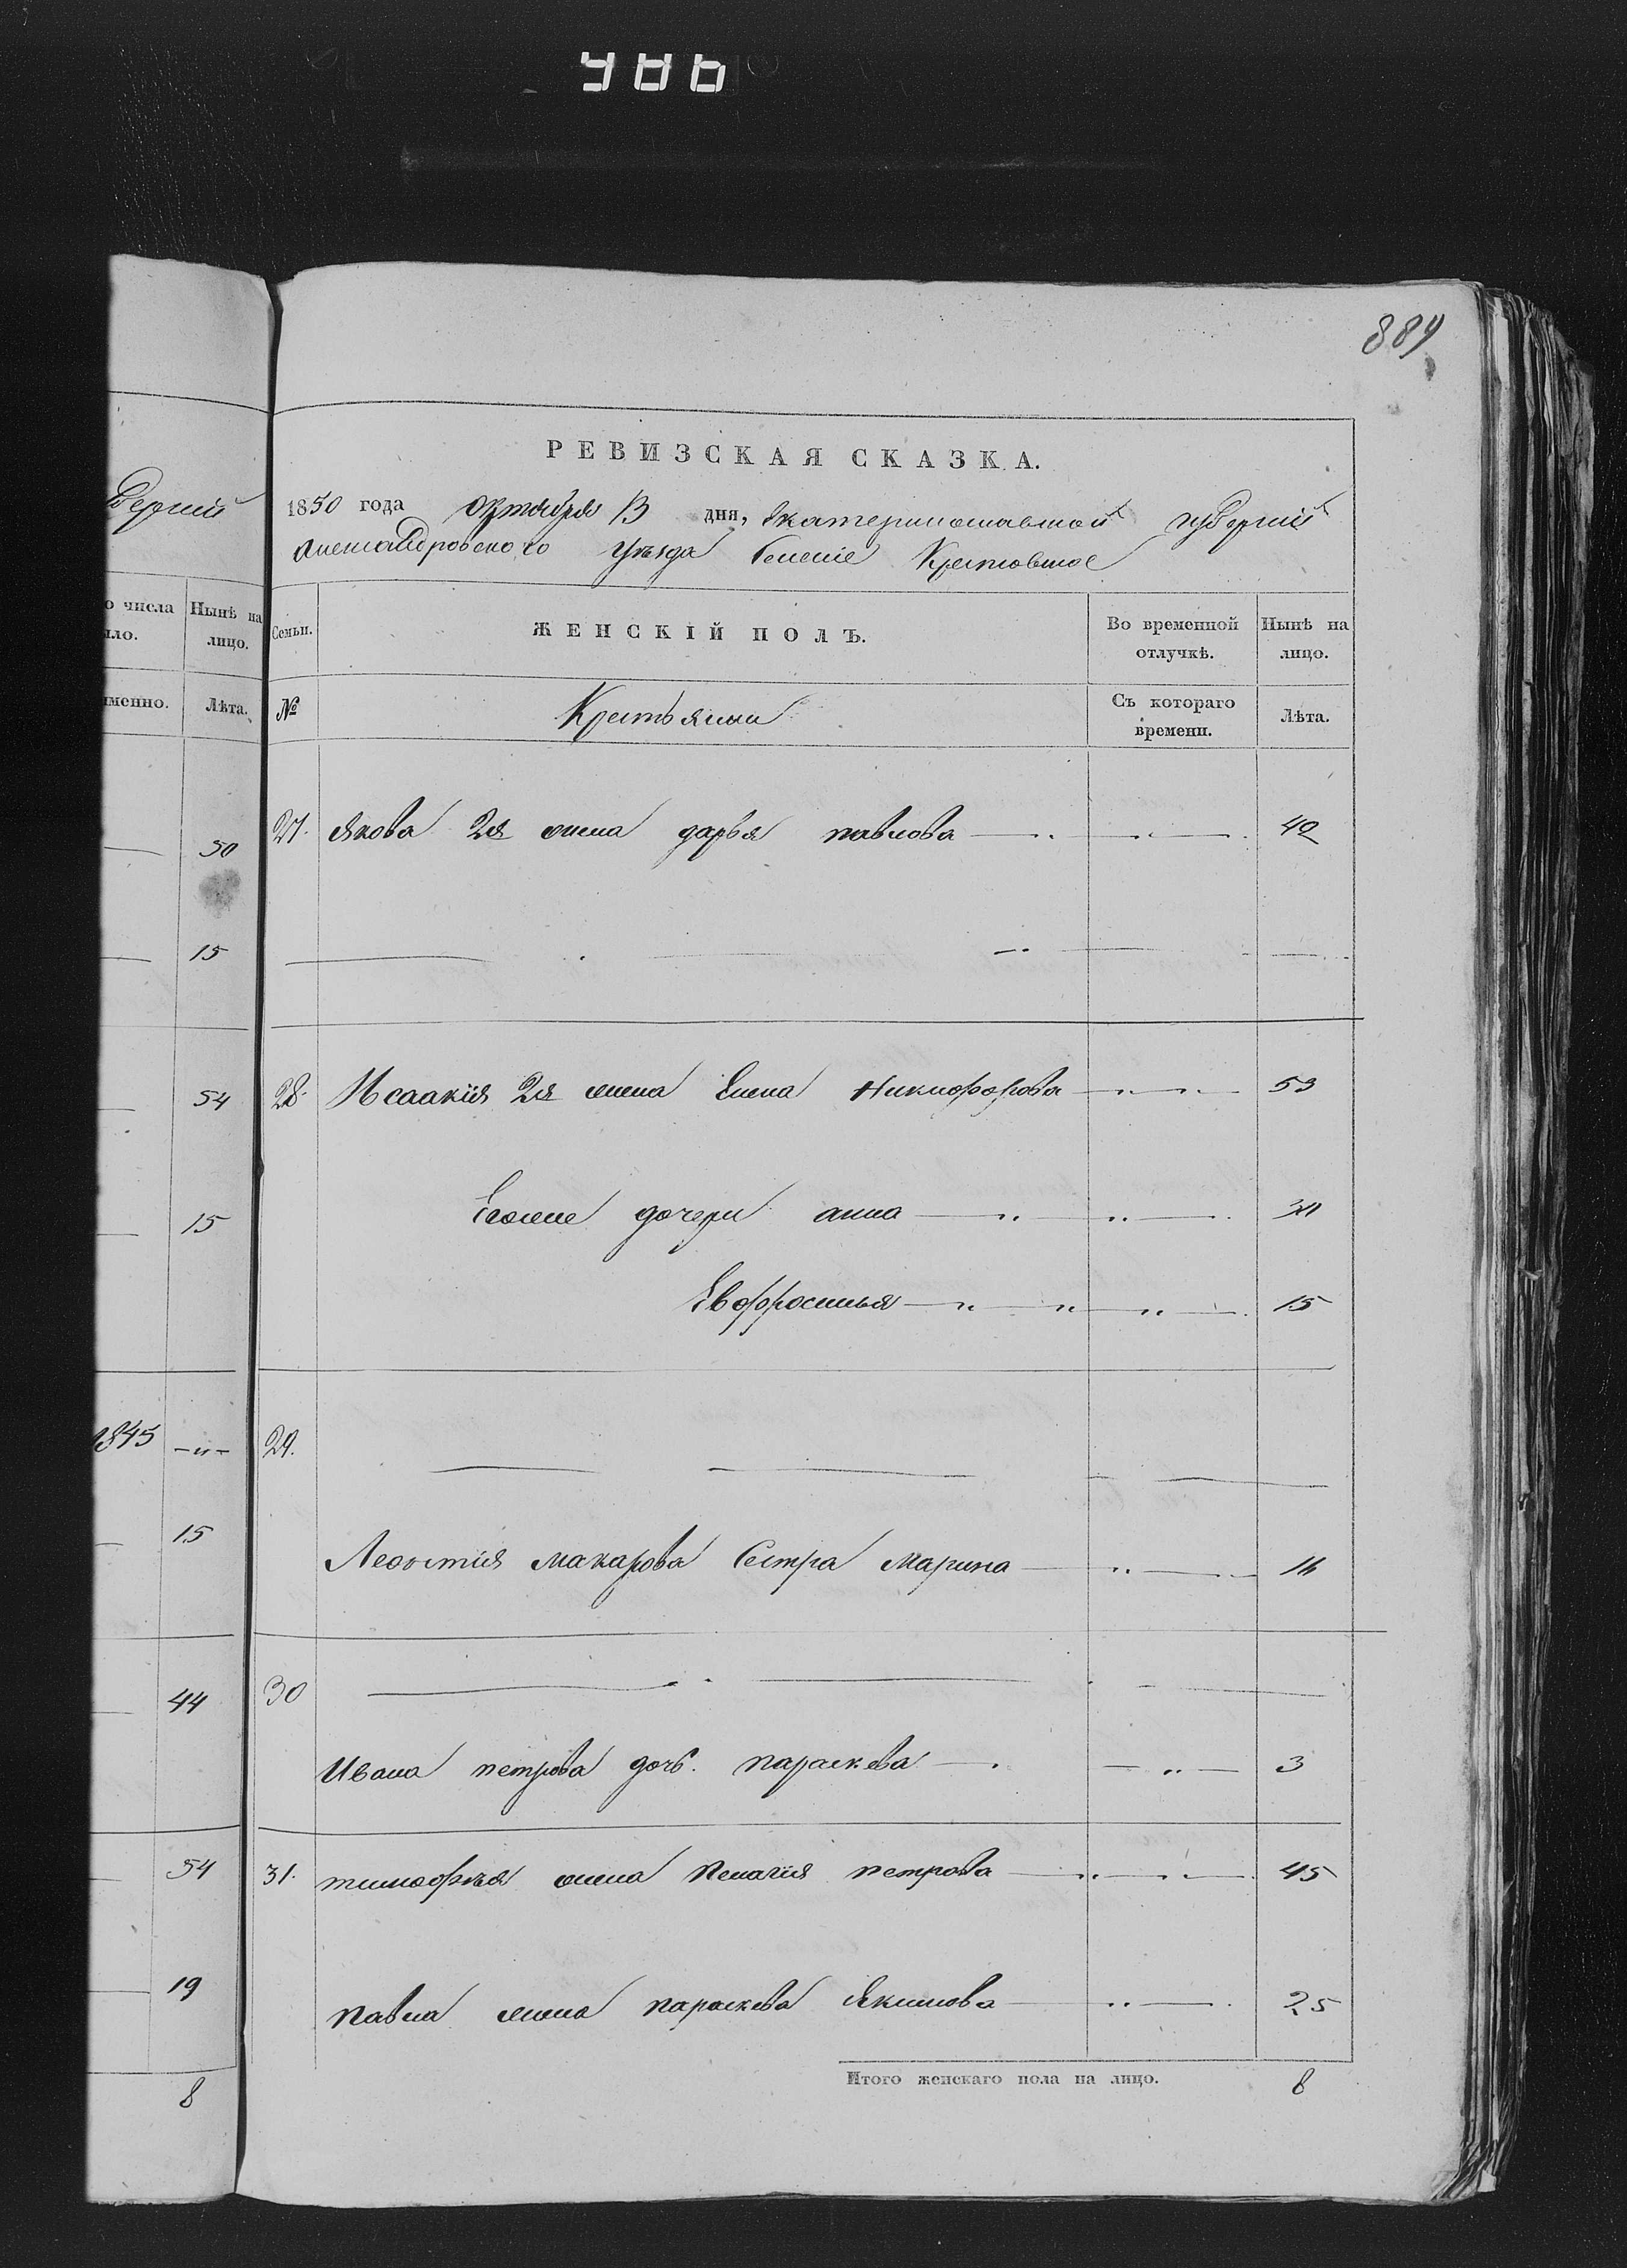 988
889
РЕВИЗСКАЯ СКАЗКА.
1850 года Октября 13 дня, Екатеринославской губерніи
Александровского Уезда Селеніе
берніи
о числа
Нынѣ на лицо.
ыло.
Семьи.
ЖЕНСКІЙ ПОЛЪ.
Во временной отлучкѣ.
Нынѣ на лицо.
именно.
Лѣта.
№
Крестьянки
Съ котораго времени.
Лѣта.
50
27. Якова 2я жена дарья павлова 40
15
54
28. Исаакія 2я жена Елена Никифорова 53
15
Егожие дочери анна
Евфросинья 15
1845
29.
15
Леонтия макарова Сестра Марина 16
44
30
Ивана петрова дочь. параскева 3
54
31. тимофѣя жена пелагия петрова 45
19
павла жена параскева Якимова 25
Итого женскаго пола на лицо. 8
8